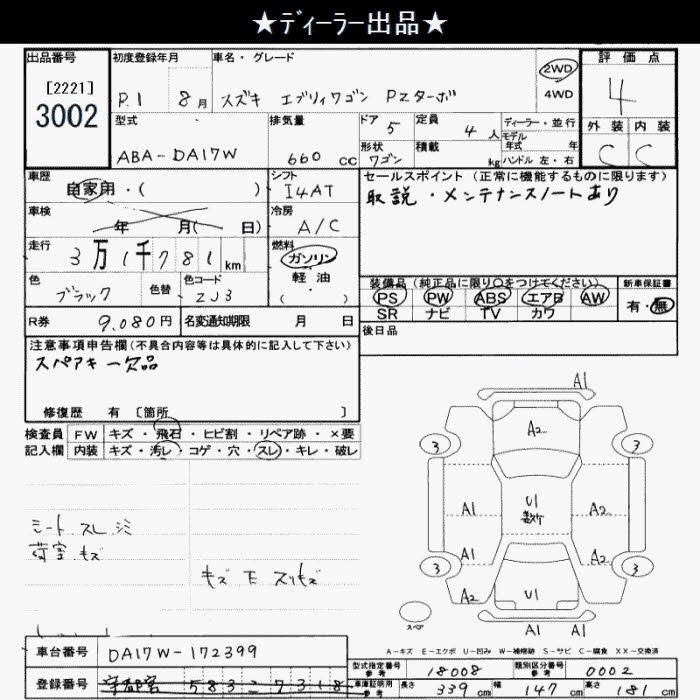 ★ディーラー出品★
出品番号
[2221]
3002
初度登録年月
R.1 8月
車名・グレード
スズキ エブリィワゴン PZターボ
2WD
4WD
評価点
4
外装 内装
C C
型式
ABA-DA17W
排気量
660 cc
ドア 5
形状
ワゴン
定員 4人
積載 kg
ディーラー・並行
モデル
年式 年
ハンドル 左・右
車歴
自家用・( )
シフト
I4AT
車検
年 月( 日)
冷房
A/C
走行
3万1千781km
燃料
ガソリン
軽油
・
( )
色
ブラック
色替
色コード
ZJ3
R券 9.080円
名変通知期限 月 日
セールスポイント(正常に機能するものに限ります)
取説・メンテナンスノートあり
装備品(純正品に限り○をつけてください)
PS PW ABS エアB AW
SR ナビ TV カワ
新車保証書
有・無
後日品
注意事項申告欄(不具合内容等は具体的に記入して下さい)
スペアキー欠品
修復歴 有 [箇所 ]
検査員
記入欄
FW キズ・飛石・ヒビ割・リペア跡・×要
内装 キズ・汚レ・コゲ・穴・スレ・キレ・破レ
シート スレ シミ
荷室 キズ
キズ E スリキズ
A1
A2
3 3
A1 U1 A2
A1 A2
3 3
A2 U1 A2
A1 A1
スペア
A-キズ E-エクボ U-凹み W-補修跡 S-サビ C-腐食 XX-交換済
車台番号 DA17W-172399
登録番号 宇都宮 583
型式指定番号
参考
18008
類別区分番号
参考
0002
車庫証明用
参考
長さ 339cm 幅 147cm 高さ 181cm